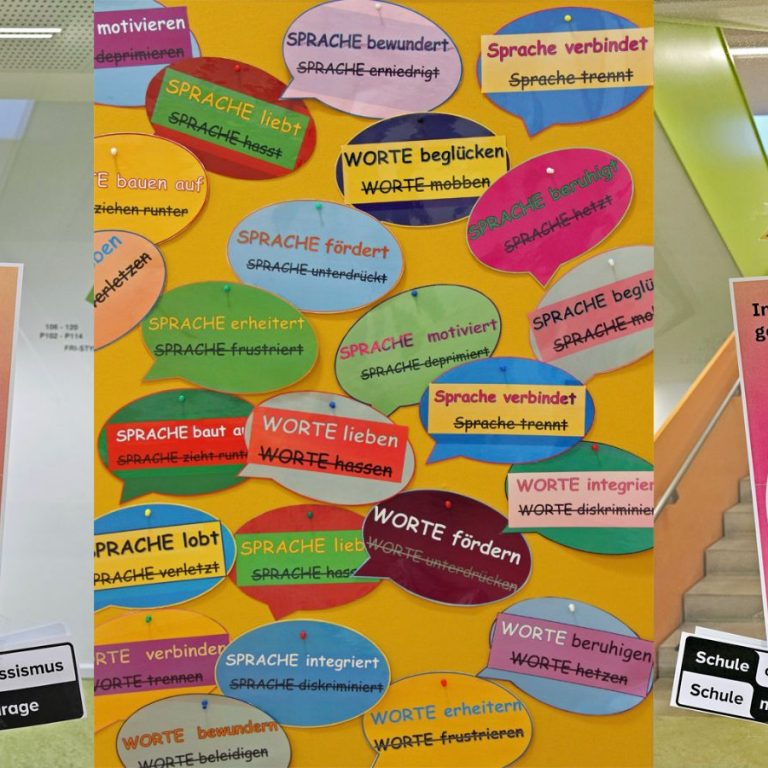 motivieren
deprimieren
SPRACHE bewundert
SPRACHE erniedrigt
Sprache verbindet
Sprache trennt
SPRACHE liebt
SPRACHE hasst
WORTE beglücken
WORTE mobben
E bauen auf
ziehen runter
SPRACHE beruhigt
SPRACHE hetzt
SPRACHE fördert
SPRACHE unterdrückt
ben
erletzen
SPRACHE beglü
SPRACHE mo
SPRACHE erheitert
SPRACHE frustriert
SPRACHE motiviert
SPRACHE deprimiert
106 - 120
P102 - P114
FRI-STY
In
ge
Sprache verbindet
Sprache trennt
SPRACHE baut au
SPRACHE zieht runt
WORTE lieben
WORTE hassen
WORTE integrier
WORTE diskriminie
SPRACHE lobt
PRACHE verletzt
SPRACHE lieb
SPRACHE hass
WORTE fördern
WORTE unterdrücken
RTE verbinden
WORTE trennen
SPRACHE integriert
SPRACHE diskriminiert
WORTE beruhigen
WORTE hetzen
WORTE bewundern
WORTE beleidigen
WORTE erheitern
WORTE frustrieren
ssismus
rage
Schule
Schule m